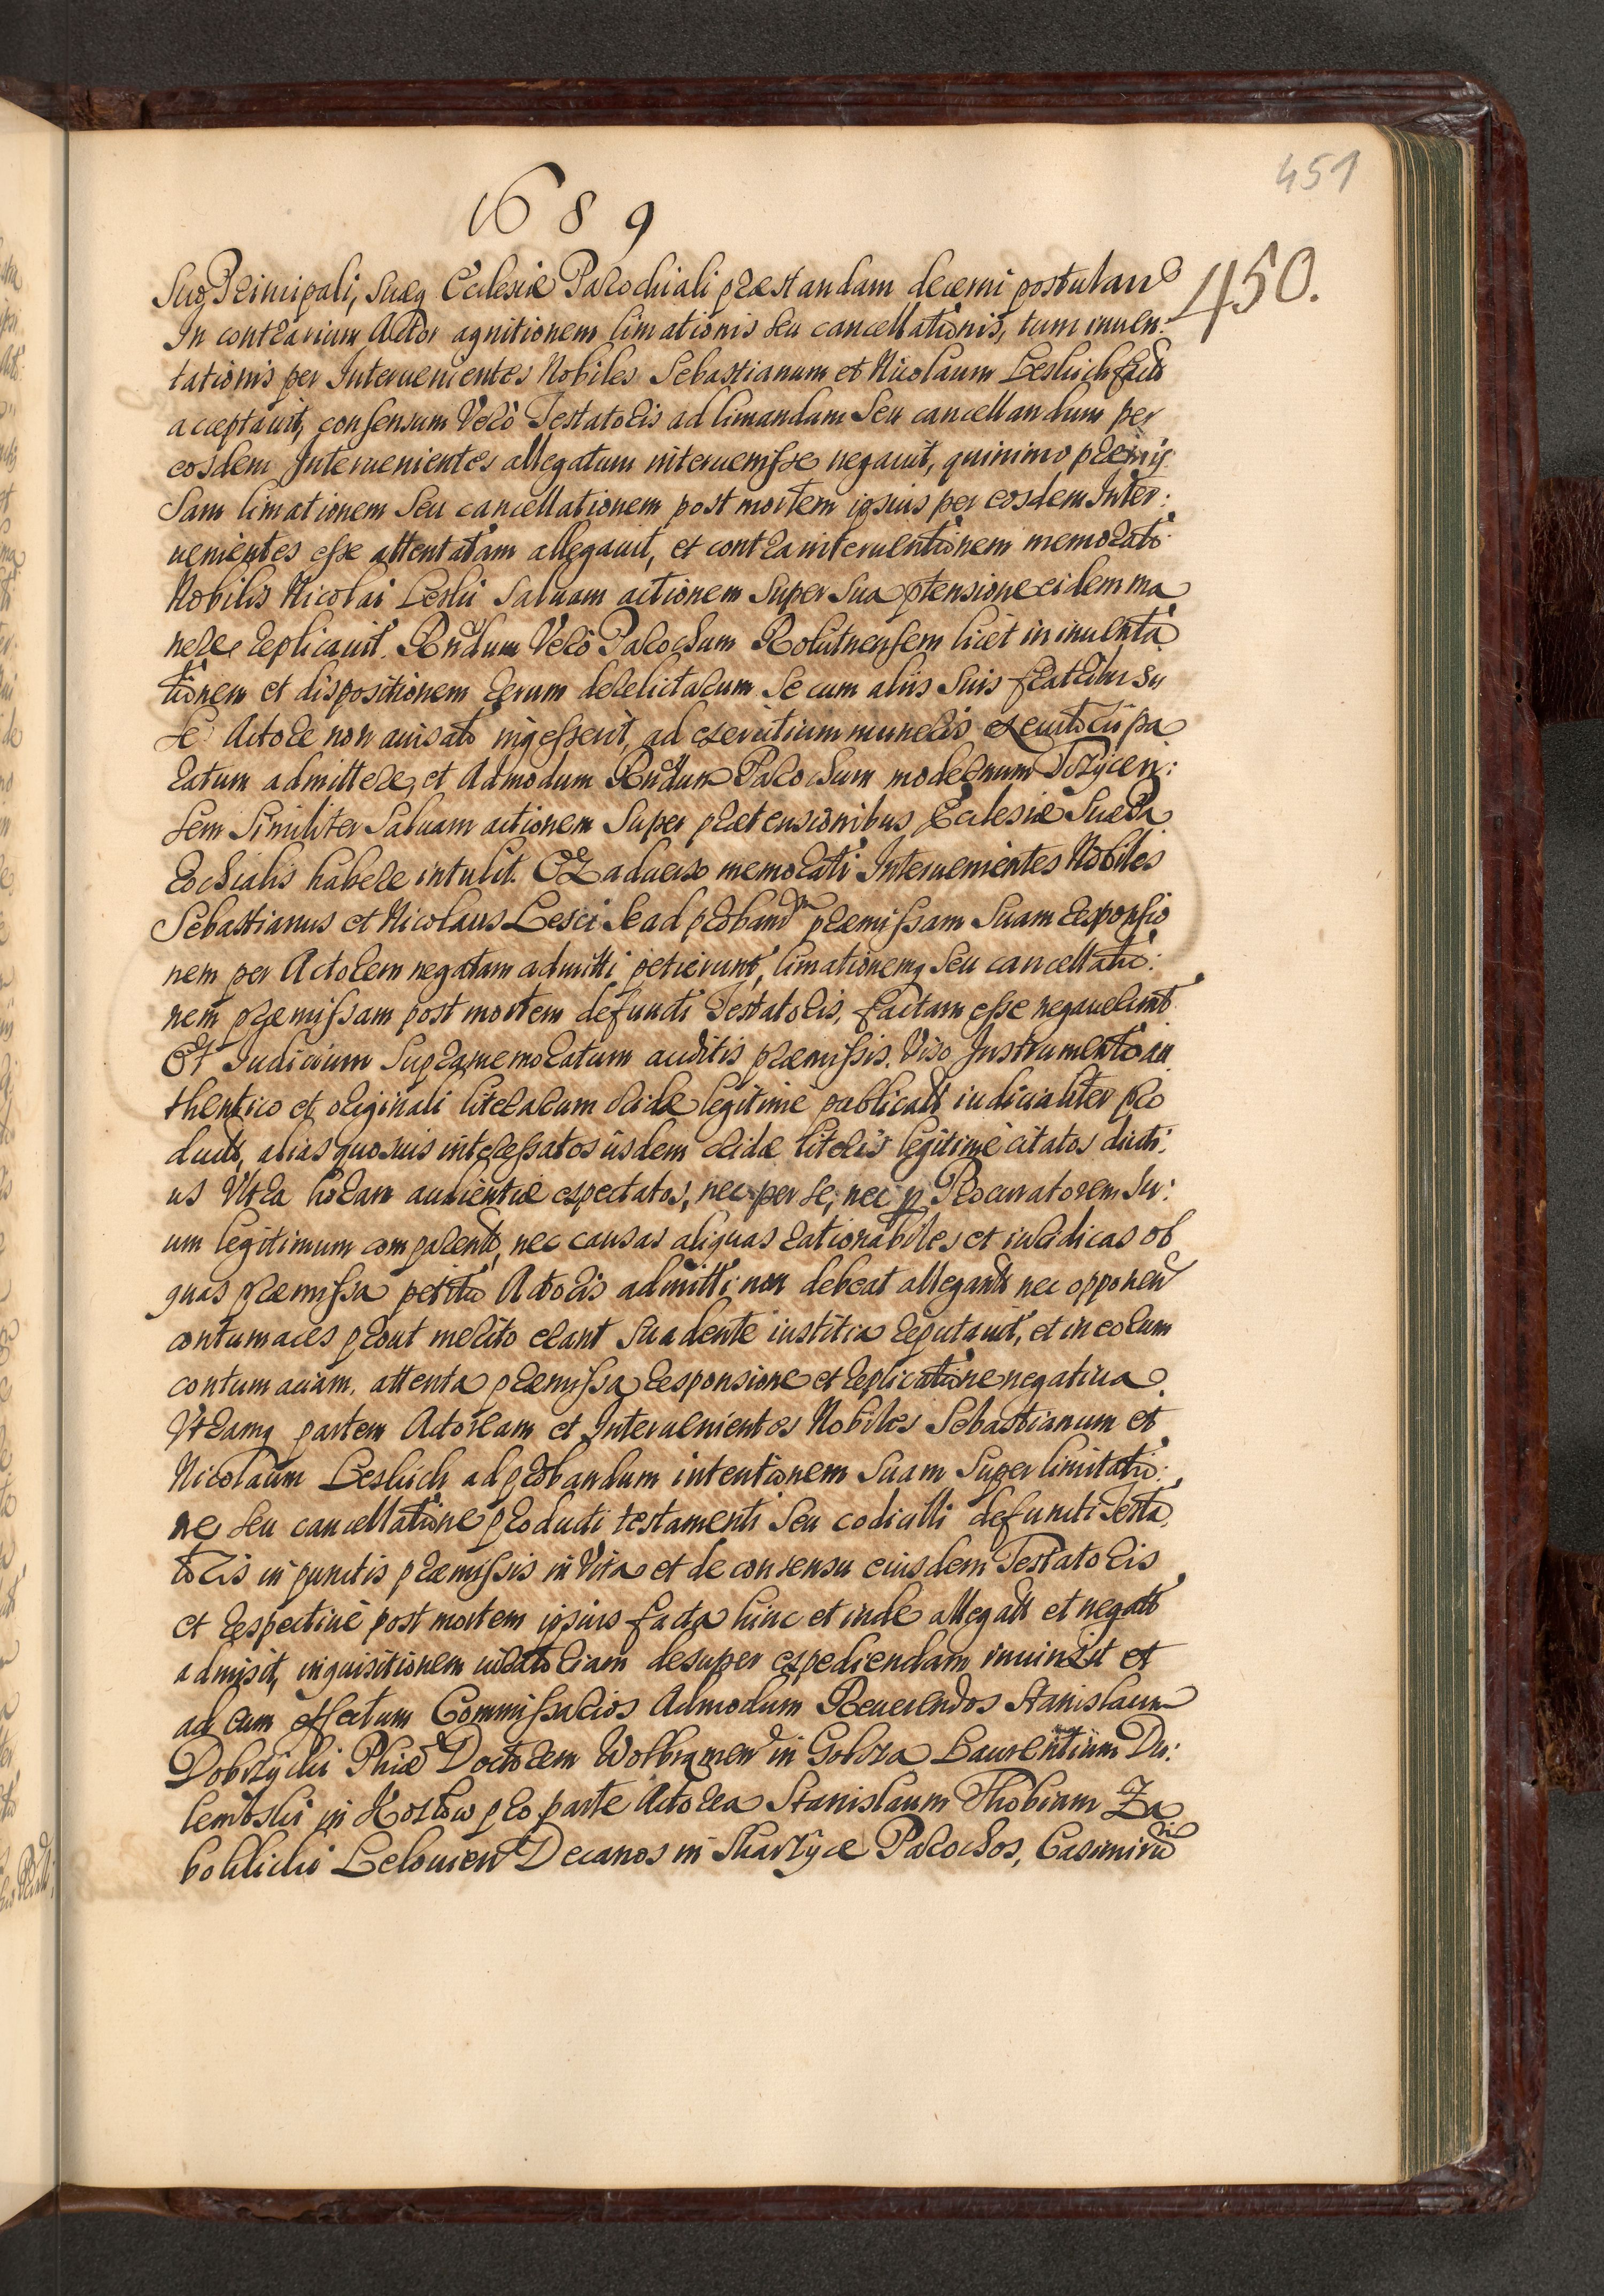 451
1689
450.
Suoq Principali, suæq Ecclesiæ Parochiali præstandam decerni postulan̄
In contrarium Actor agnitionem limationis seu cancellationis, tum inuen:
tationis per Interuenientes Nobiles Sebastianum et Nicolaum Leskich
acceptauit, consensum Verò Testatoris ad limandam seu cancellandum per
eosdem Interuenientes allegatum interuenisse negauit, quinimo præmis
sam limationem seu cancellationem post mortem ipsius per eosdem Inter:
uenientes esse attentatam allegauit, et contra interuentionem memorati
Nobilis Nicolai Leski saluam actionem super sua ptensione eidem ma
nere replicauit. Rndum Verò Parochum Rokitnensem licet in inuenta
tionem et dispositionem rerum derelictarum se cum aliis suis fratribus
se Actore non auisato ingesserit, ad exercitium muneris executoris pa
ratum admittere, et Admodum Rndum Parochum modernum
sem similiter saluam actionem super prætensionibus Ecclesiæ suæ Pa
rochialis habere intulit. Ex aduerso memorati Interuenientes Nobiles
Sebastianus et Nicolaus Lesci se ad proband̄ præmissam suam responsio
nem per Actorem negatam admitti petierunt, limationemq seu cancellatio:
nem præmissam post mortem defuncti Testatoris, factam esse negauerunt.
Et Iudicium supramemoratum auditis præmissis. Viso Instrumento au
thentico et originali literarum cridæ legitimè publicatt iudicialiter pro
ductt, alias quosuis interessatos iisdem cridæ literis legitimè citatos diuti:
us Vltra horam audientiæ expectatos, nec per se, nec p Procuratorem su:
um legitimum comparentt, nec causas aliquas rationabiles et iuridicas ob
quas præmissa petita Actoris admitti non debeat allegantt nec opponen̄
contumaces prout merito erant suadente iustitia reputauit, et in eorum
contumaciam, attenta præmissa responsione et replicatione negatiua
Vtramq partem Actoream et Interuenientes Nobiles Sebastianum et
Nicolaum Leskich ad probandum intentionem suam super limitatio:
ne seu cancellatione producti testamenti seu codicilli defuncti Testa
toris in punctis præmissis in Vita et de consensu eiusdem Testatoris
et respectiuè post mortem ipsius facta hinc et inde allegatt et negatt
admisit, inquisitionem iuratoriam desuper expediendam iniunxit et
ad eum effectum Commissarios Admodum Reuerendos Stanislaum
Dobrzycki Phiæ Doctorem Wolbramen̄ in Golcza Laurentium Du:
lembski in Kozlow pro parte Actorea Stanislaum Thobiam Za
boklicki Lelouien̄ Decanos in Skarzyce Parochos, Casimirū